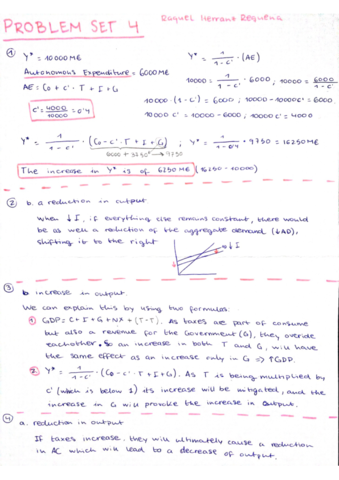 PROBLEM SET 4
Raquel Herrant Requena
① Y* = 10000 M€
Autonomous Expenditure = 6000 M€
AE = C0 + c' · T + I + G
c' = 4000/10000 = 0'4
Y* = 1/(1-c') · (AE)
10000 = 1/(1-c') · 6000, 10000 = 6000/(1-c')
10000 · (1-c') = 6000, 10000 - 10000c' = 6000
10000c' = 10000 - 6000, 10000c' = 4000
Y* = 1/(1-c') · (C0 - c' · T + I + G), Y* = 1/(1-0'4) · 9750 = 16250 M€
6000 + 3750 → 9750
The increase in Y* is of 6250 M€ (16250 - 10000)
② b. a reduction in output
When ↓I, if everything else remains constant, there would
be as well a reduction of the aggregate demand (↓AD),
shifting it to the right
↓I
③ b increase in output
We can explain this by using two formulas:
① GDP = C + I + G + NX + (T-T). As taxes are part of consume
but also a revenue for the Government (G), they overide
eachother. So an increase in both T and G, will have
the same effect as an increase only in G => ↑GDP.
② Y* = 1/(1-c') · (C0 - c' · T + I + G). As T is being multiplied by
c' (which is below 1) its increase will be mitigated, and the
increase in G will provoke the increase in Output.
④ a. reduction in output
If taxes increase, they will ultimately cause a reduction
in AC which will lead to a decrease of output.